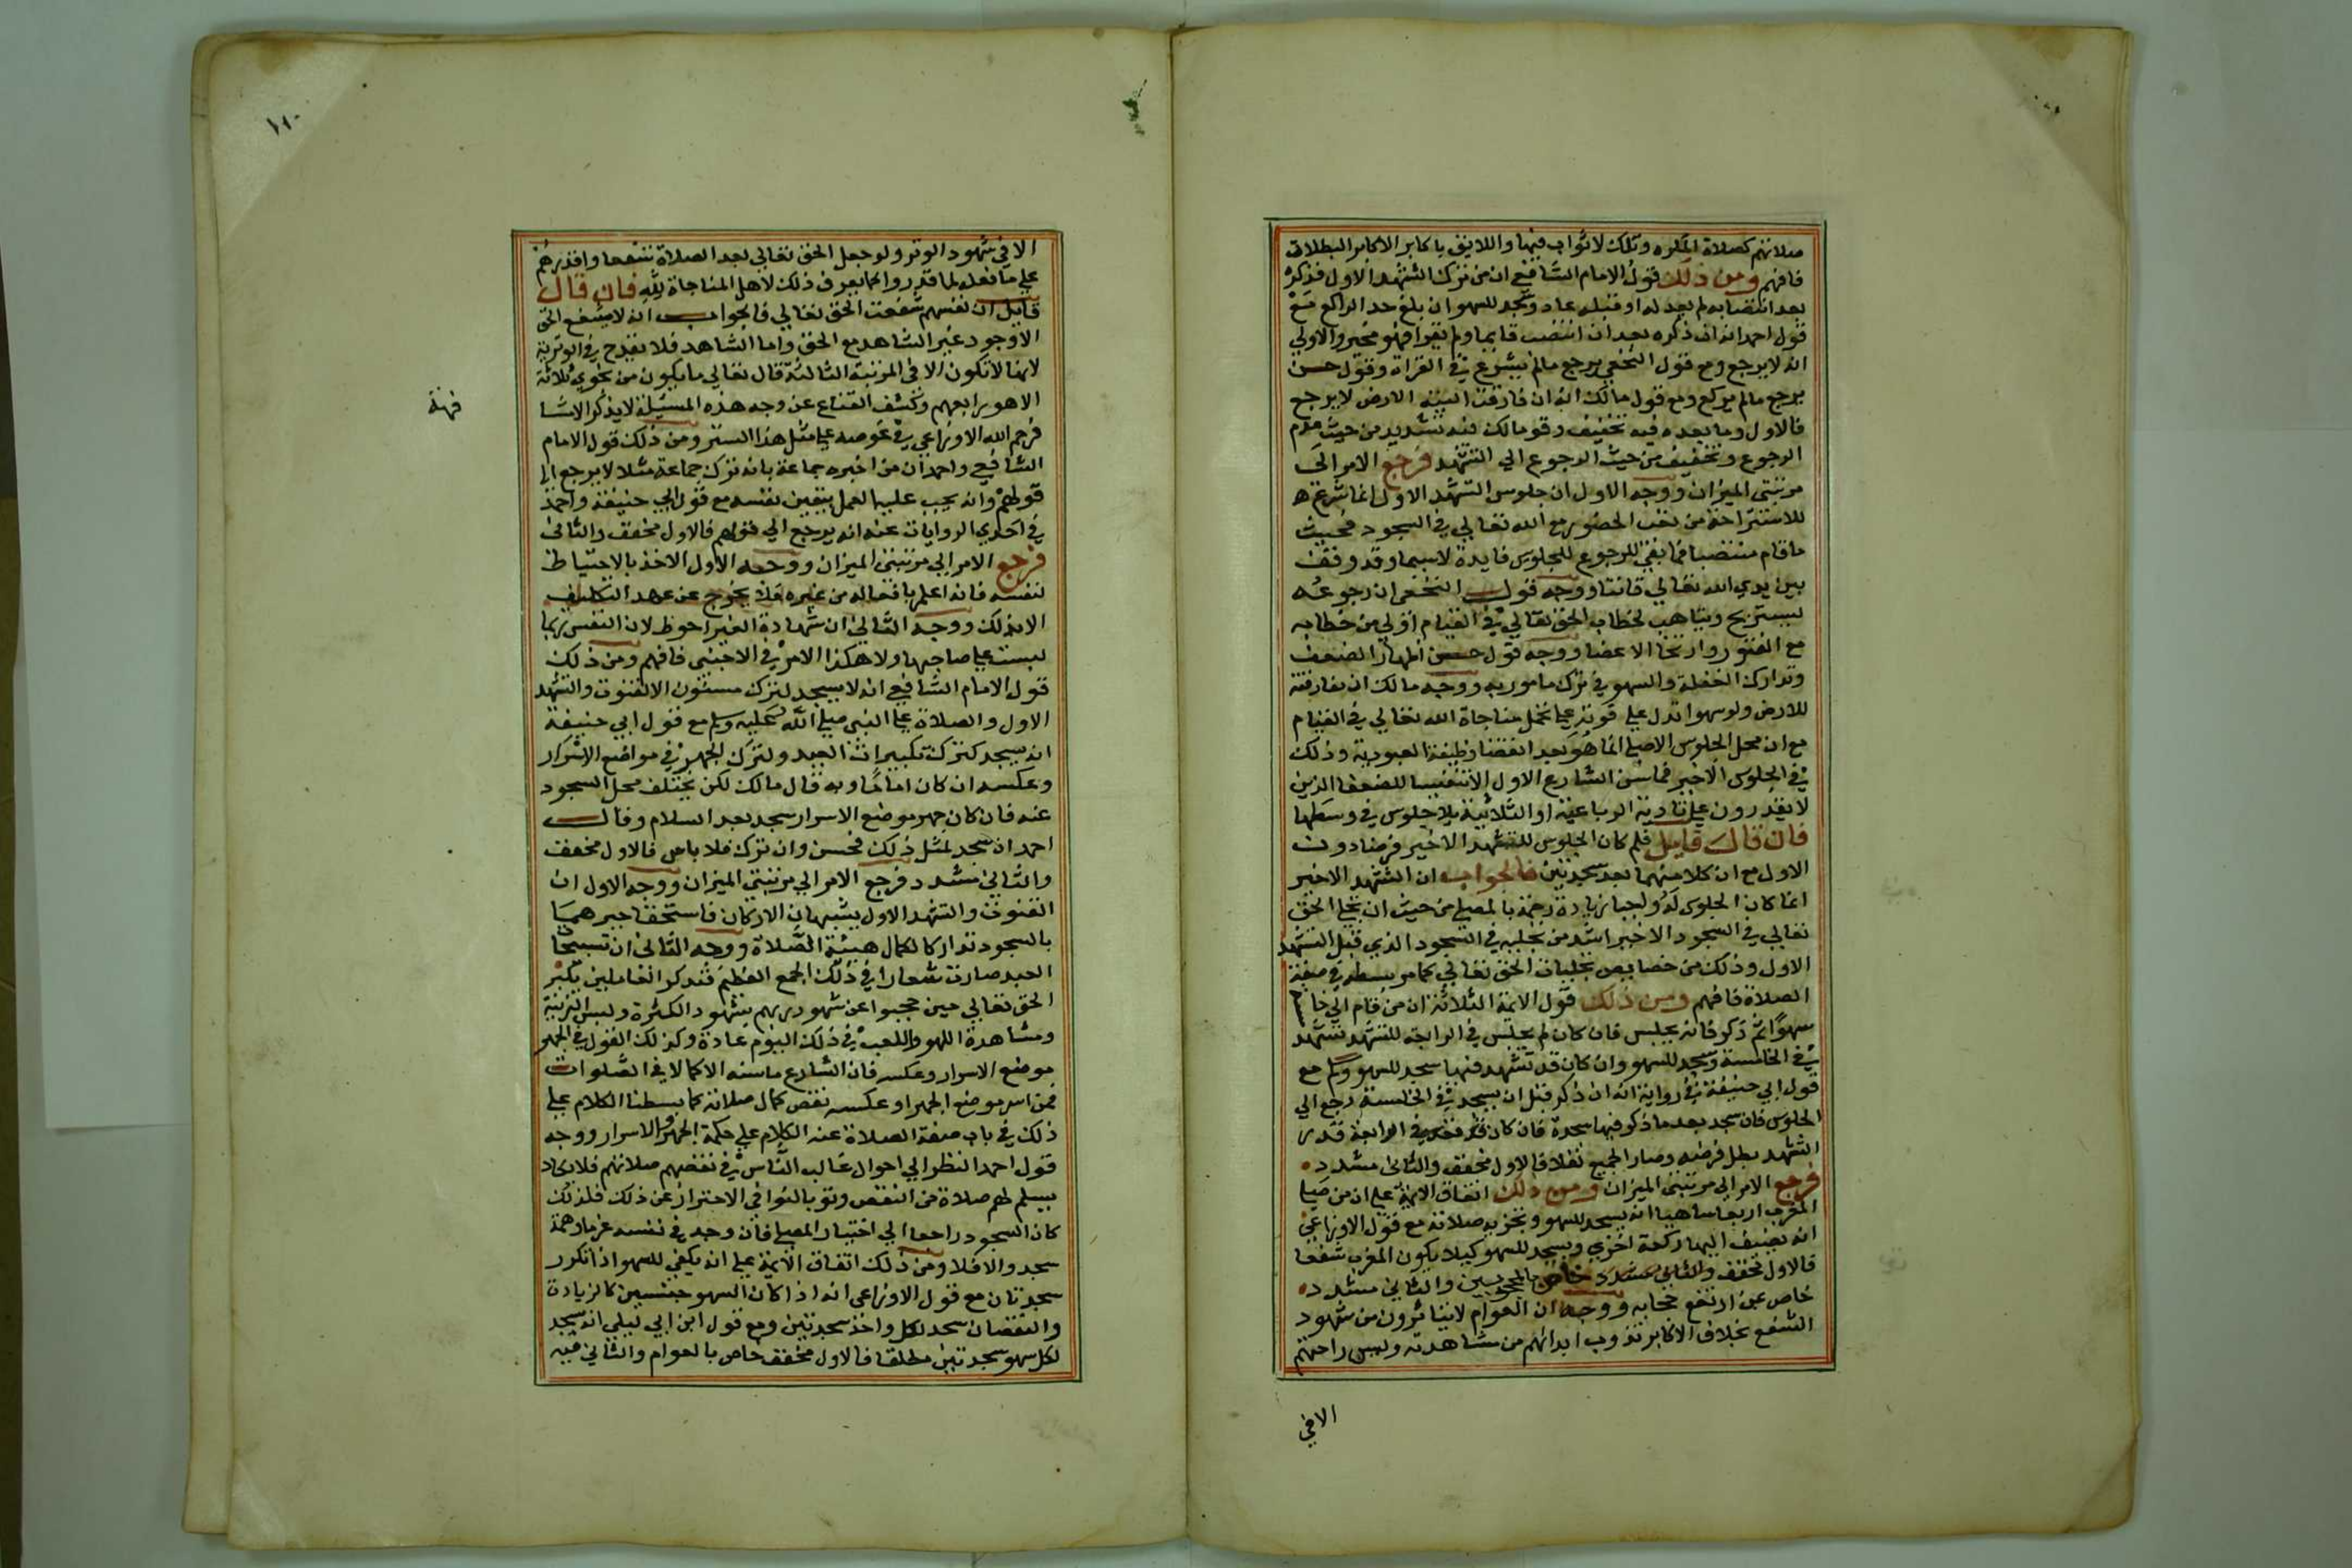 صلاتهم كصلاة المكره وتلك لا ثواب فيها واللايق باكابر الاكابر البطلان
فافهم ومن ذلك قول الامام الشافعي ان من ترك التشهد الاول فذكره
بعد انتصابه لم يعد له او قبله عاد وسجد للسهو ان بلغ حد الراكع مع
قول احمد انه ان ذكره بعد ان انتصب قايما ولم يقرا فهو مخير والاولي
انه لا يرجع ومع قول النخعي يرجع مالم يشرع في القراة وقول حسن
يرجع مالم يركع ومع قول مالك انه ان فارقت اليته الارض لا يرجع
فالاول وما بعده فيه تخفيف وقو مالك فيه تشديد من حيث عدم
الرجوع وتخفيف من حيث الرجوع الي التشهد فرجع الامر الي
مرتبتي الميزان ووجه الاول ان جلوس التشهد الاول انما شرع
للاستراحة من تعب الحضور مع الله تعالي في السجود فحيث
ما قام منتصبا فما بقي للرجوع للجلوس فايدة لاسيما وقد وقف
بين يدي الله تعالي قانتا ووجه قول النخعي ان رجوعه
ليستريح ويتاهب لخطاب الحق تعالي في القيام اولي من خطابه
مع الفتور وارتخا الاعضا ووجه قول حسن اظهار الضعف
وتدارك الغفلة والسهو في ترك مامور به ووجه مالك ان مفارقته
للارض ولو سهوا تدل علي قوته علي تحمل مناجاة الله تعالي في القيام
مع ان محل الجلوس الاصلي انما هو بعد انقضا وظيفة العبودية وذلك
في الجلوس الاخير فما سن الشارع الاول الا تنفيسا للضعفا الذين
لا يقدرون علي تادية الرباعية او الثلاثية بلا جلوس في وسطها
فان قال قايل فلم كان الجلوس للتشهد الاخير فرضا دون
الاول مع ان كلا منهما بعد سجدتين فالجواب ان التشهد الاخير
انما كان الجلوس له واجبا زيادة رحمة بالمصلي من حيث ان تجلي الحق
تعالي في السجود الاخير اشد من تجليه في السجود الذي قبل التشهد
الاول وذلك من خصايص تجليات الحق تعالي كما مر بسطه في صفة
الصلاة فافهم ومن ذلك قول الايمة الثلاثة ان من قام الي خامسة
سهوا ثم ذكر فانه يجلس فان كان لم يجلس في الرابعة للتشهد تشهد
في الخامسة وسجد للسهو وان كان قد تشهد فيها سجد للسهو وسلم مع
قول ابي حنيفة في رواية انه ان ذكر قبل ان يسجد في الخامسة رجع الي
الجلوس فان سجد بعد ما ذكر فيها سجدة فان كان قد قعد في الرابعة قدر
التشهد بطل فرضه وصار الجميع نفلا فالاول مخفف والثاني مشدد
فرجع الامر الي مرتبتي الميزان ومن ذلك اتفاق الايمة علي ان من صلي
المغرب اربعا ساهيا انه يسجد للسهو وتجزيه صلاته مع قول الاوزاعي
انه يضيف اليها ركعة اخري ويسجد للسهو كيلا يكون المغرب شفعا
فالاول مخفف والثاني مشدد خاص بالمحجوبين والثاني مشدد
خاص بمن ارتفع حجابه ووجهه ان العوام لا يتاثرون من شهود
الشفع بخلاف الاكابر تذوب ابدانهم من مشاهدته وليس راحتهم
الا في
الا في شهود الوتر ولو جعل الحق تعالي بعد الصلاة شفعا واقدرهم
علي ما فعله لما قدروا كما يعرف ذلك لاهل المناجاة لله فان قال
قايل ان نفسهم شفعت الحق تعالي فالجواب انه لا يشفع الحق
الا وجود غير الشاهد مع الحق واما الشاهد فلا يقدح في الوترية
لانها لا تكون الا في المرتبة الثالثة قال تعالي ما يكون من نجوي ثلاثة
الا هو رابعهم وكشف القناع عن وجه هذه المسئلة لا يذكر الا شا
فرحم الله الاوزاعي في غوصه علي مثل هذا الستر ومن ذلك قول الامام
الشافعي واحمد ان من اخبره جماعة بانه ترك جماعة مثلا لا يرجع الي
قولهم وانه يجب عليه العمل بيقين نفسه مع قول ابي حنيفة واحمد
في احدي الروايات عنه انه يرجع الي قولهم فالاول مخفف والثاني
فرجع الامر الي مرتبتي الميزان ووجه الاول الاخذ بالاحتياط
لنفسه فانه اعلم بافعاله من غيره فلا يخرج عن عهد التكليف
الا بذلك ووجه الثاني ان شهادة الغير احوط لان النفس ربما
لبست علي صاحبها ولا هكذا الامر في الاجنبي فافهم ومن ذلك
قول الامام الشافعي انه لا يسجد لترك مسنون الا القنوت والتشهد
الاول والصلاة علي النبي صلي الله عليه وسلم مع قول ابي حنيفة
انه يسجد كترك تكبيرات العيد ولترك الجهر في مواضع الاسرار
وعكسه ان كان اماما وبه قال مالك لكن يختلف محل السجود
عنه فان كان جهر موضع الاسرار سجد بعد السلام وقال
احمد ان سجد لمثل ذلك فحسن وان ترك فلا باس فالاول مخفف
والثاني مشدد فرجع الامر الي مرتبتي الميزان ووجه الاول ان
القنوت والتشهد الاول يشبهان الاركان فاستحقا جبرهما
بالسجود تداركا لكمال هيئة الصلاة ووجه الثاني ان تسبيحا
العيد صارت شعارا في ذلك الجمع العظيم فتذكر الغافلين بكبر
الحق تعالي حين حجبوا عن شهود ربهم بشهود الكثرة ولبس الزينة
ومشاهدة اللهو واللعب في ذلك اليوم عادة وكذلك القول في الجهر
موضع الاسرار وعكسه فان الشارع ما سنه الا كمالا في الصلوات
فمن اسر موضع الجهر او عكسه نقص كمال صلاته كما بسطنا الكلام علي
ذلك في باب صفة الصلاة عند الكلام علي حكمة الجهر والاسرار ووجه
قول احمد النظر الي احوال غالب الناس في نقصهم صلاتهم فلا يكاد
يسلم لهم صلاة من النقص ولو بالغوا في الاحتراز عن ذلك فلذلك
كان السجود راجعا الي اختيار المصلي فان وجد في نفسه عزما وهمة
سجد والا فلا ومن ذلك اتفاق الايمة علي انه يكفي للسهو اذا تكرر
سجدتان مع قول الاوزاعي انه اذا كان السهو جنسين كالزيادة
والنقصان سجد لكل واحد سجدتين ومع قول ابن ابي ليلي انه يسجد
لكل سهو سجدتين مطلقا فالاول مخفف خاص بالعوام والثاني فيه